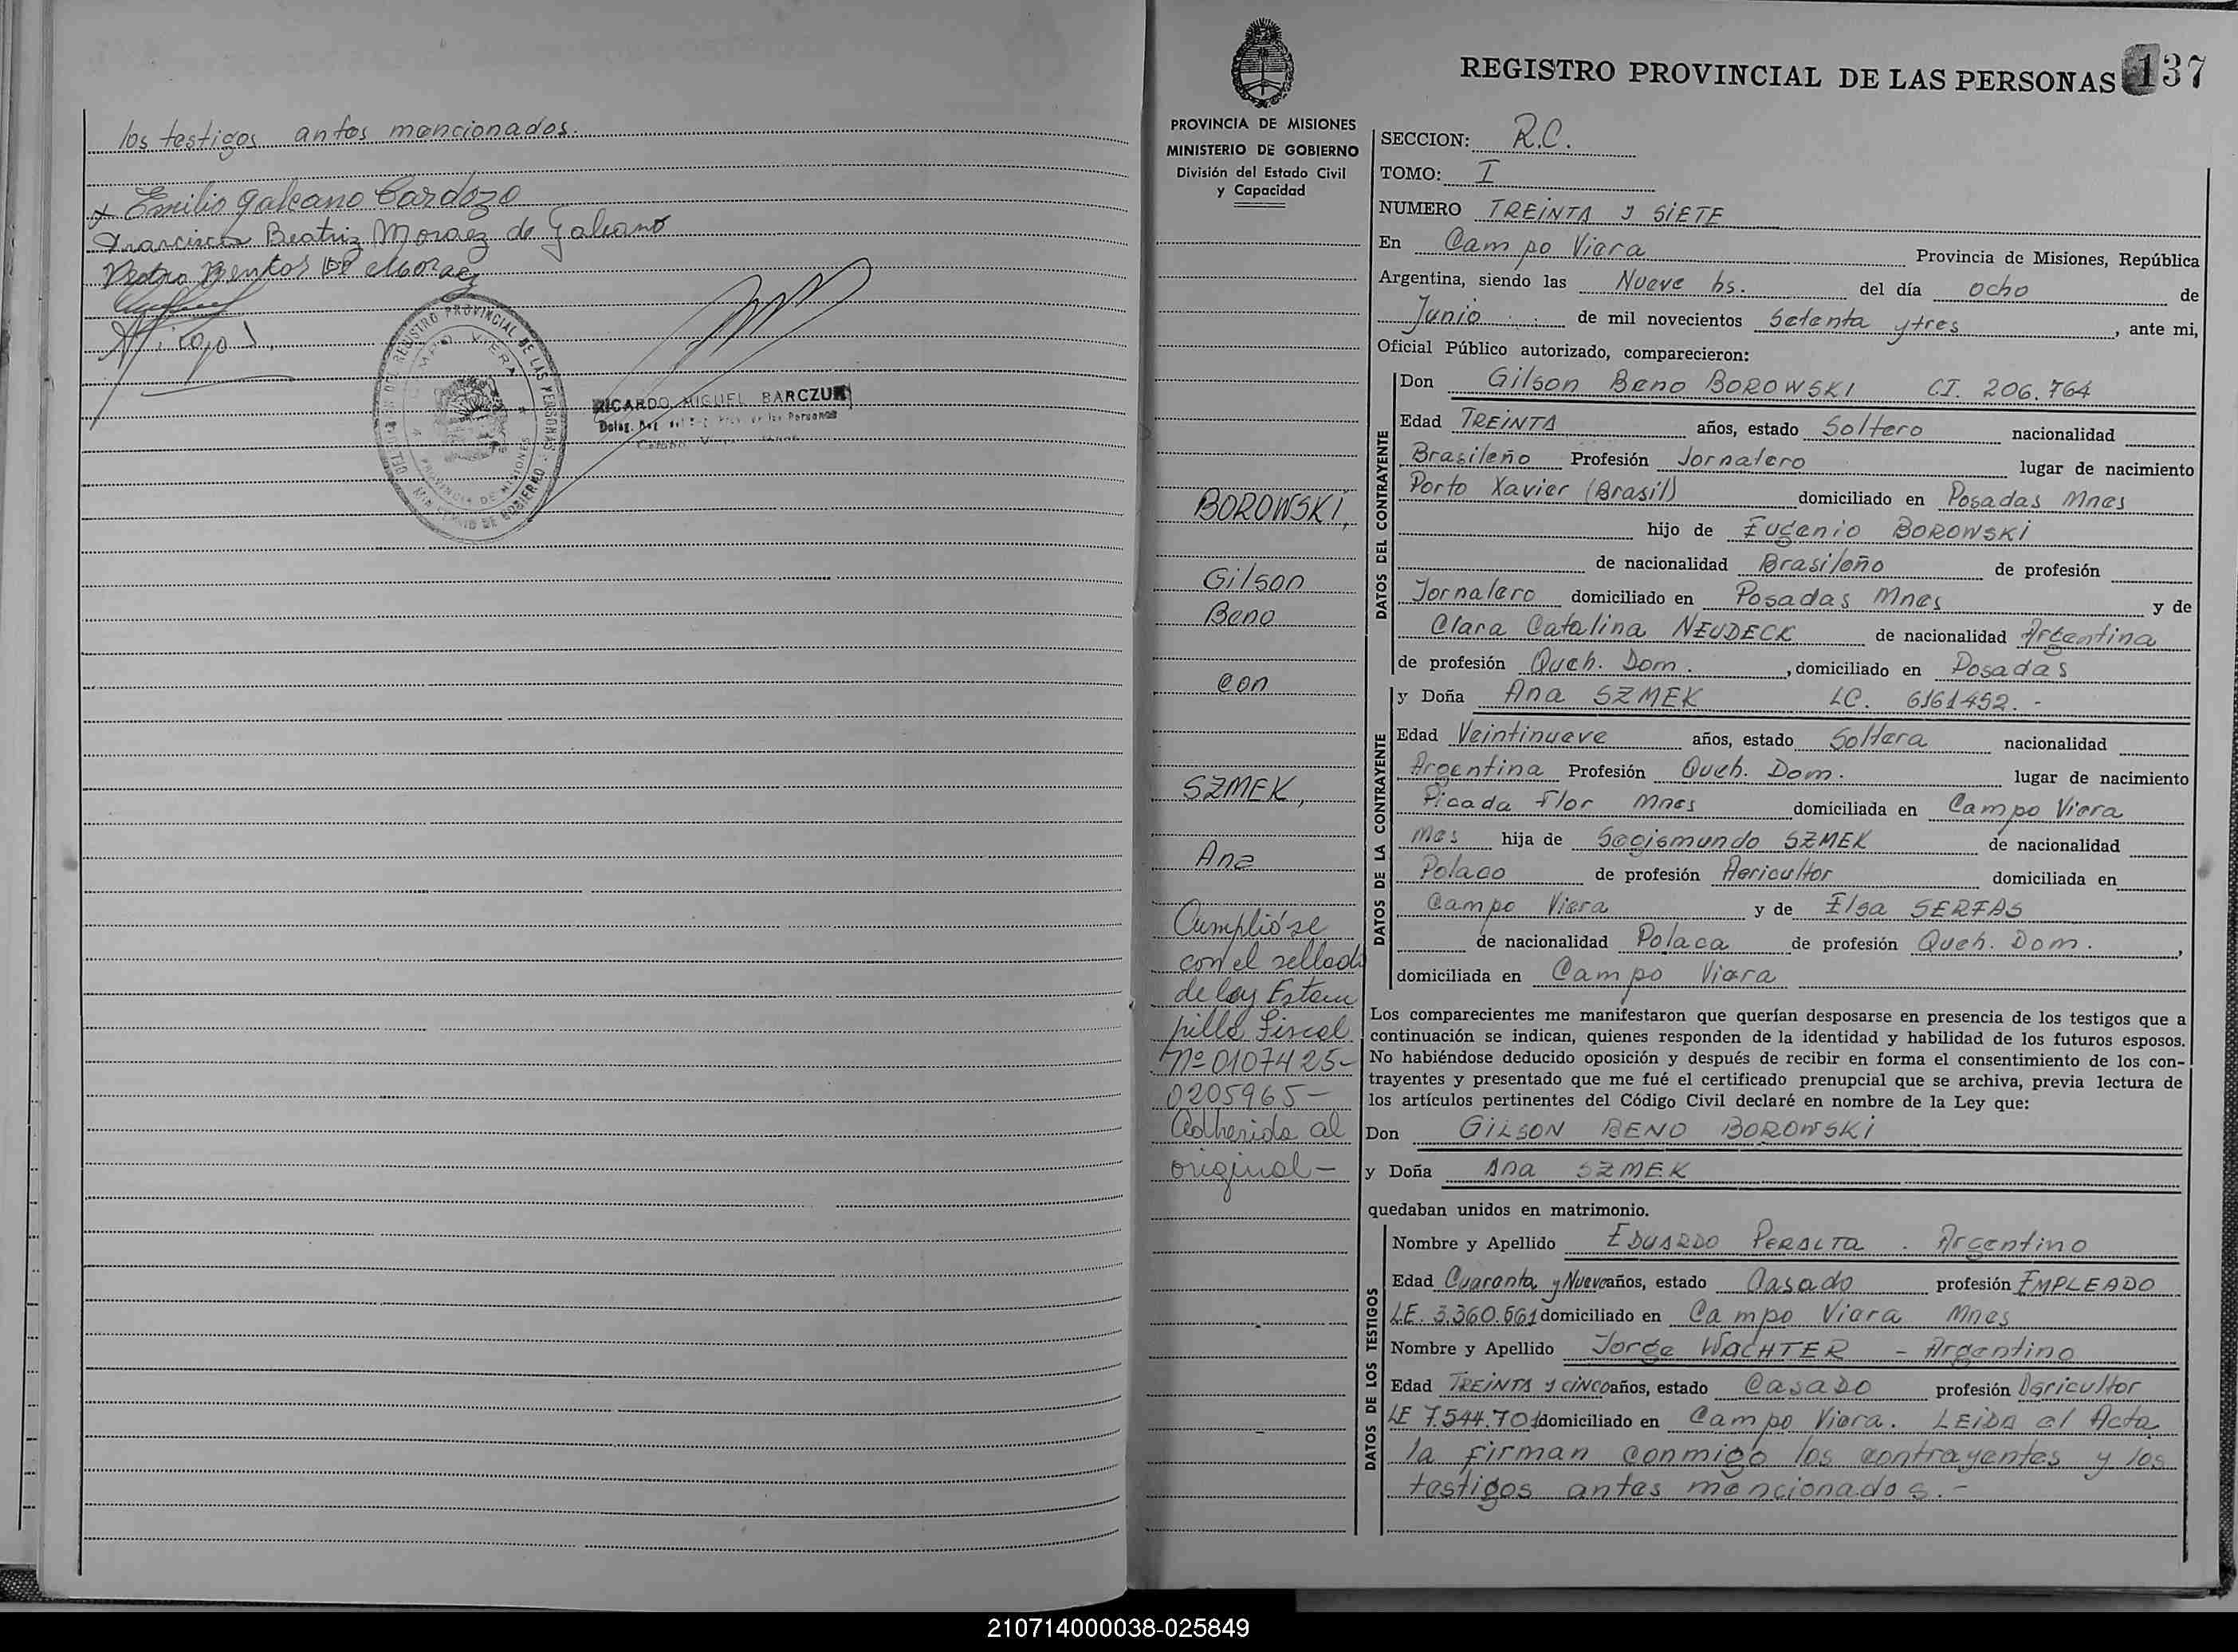 los testigos antes mencionados.
Emilio Galeano Cardozo
Francisca Beatriz Moraez de Galeano
Pedro Bentos de Moraez
A. Rojo
DEL REGISTRO PROVINCIAL DE LAS PERSONAS
CAMPO VIERA
PROVINCIA DE MISIONES
MINISTERIO DE GOBIERNO
RICARDO MIGUEL BARCZUK
REGISTRO PROVINCIAL DE LAS PERSONAS 137
PROVINCIA DE MISIONES
MINISTERIO DE GOBIERNO
División del Estado Civil
y Capacidad
BOROWSKI,
Gilson
Beno
con
SZMEK,
Ana
Cumplióse
con el sellado
de ley Estam
pilla Fiscal
Nº 0107425-
0205965-
Adherida al
original-
SECCION: R.C.
TOMO: I
NUMERO TREINTA y SIETE
En Campo Viera Provincia de Misiones, República
Argentina, siendo las Nueve hs. del día ocho de
Junio de mil novecientos Setenta y tres, ante mi,
Oficial Público autorizado, comparecieron:
DATOS DEL CONTRAYENTE
Don Gilson Beno BOROWSKI CI. 206.764
Edad TREINTA años, estado Soltero nacionalidad
Brasileño Profesión Jornalero lugar de nacimiento
Porto Xavier (Brasil) domiciliado en Posadas Mnes
hijo de Eugenio BOROWSKI
de nacionalidad Brasileño de profesión
Jornalero domiciliado en Posadas Mnes y de
Clara Catalina NEUDECK de nacionalidad Argentina
de profesión Queh. Dom. , domiciliado en Posadas
DATOS DE LA CONTRAYENTE
y Doña Ana SZMEK LC. 6161452.-
Edad Veintinueve años, estado Soltera nacionalidad
Argentina Profesión Queh. Dom. lugar de nacimiento
Picada Flor Mnes domiciliada en Campo Viera
Mes hija de Segismundo SZMEK de nacionalidad
Polaco de profesión Agricultor domiciliada en
Campo Viera y de Elsa SERFAS
de nacionalidad Polaca de profesión Queh. Dom. ,
domiciliada en Campo Viera
Los comparecientes me manifestaron que querían desposarse en presencia de los testigos que a
continuación se indican, quienes responden de la identidad y habilidad de los futuros esposos.
No habiéndose deducido oposición y después de recibir en forma el consentimiento de los con-
trayentes y presentado que me fué el certificado prenupcial que se archiva, previa lectura de
los artículos pertinentes del Código Civil declaré en nombre de la Ley que:
Don GILSON BENO BOROWSKI
y Doña Ana SZMEK
quedaban unidos en matrimonio.
DATOS DE LOS TESTIGOS
Nombre y Apellido EDUARDO PERALTA . Argentino
Edad Cuaranta y Nueve años, estado Casado profesión EMPLEADO
LE. 3.360.661 domiciliado en Campo Viera Mnes
Nombre y Apellido Jorge WACHTER - Argentino
Edad TREINTA y CINCO años, estado CASADO profesión Agricultor
LE 7.544.701 domiciliado en Campo Viera. LEIDA el Acta
la firman conmigo los contrayentes y los
testigos antes mencionados.-
210714000038-025849